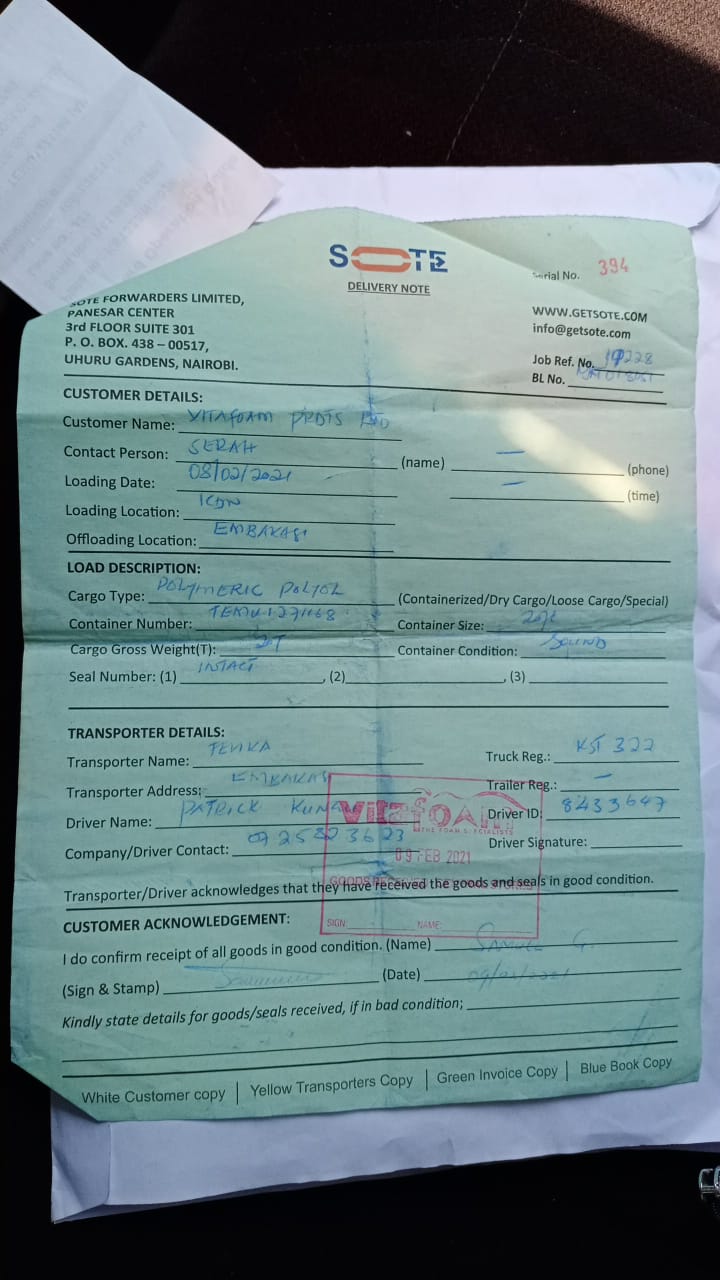 SOTE
Serial No. 394
DELIVERY NOTE
SOTE FORWARDERS LIMITED,
PANESAR CENTER
3rd FLOOR SUITE 301
P. O. BOX. 438 – 00517,
UHURU GARDENS, NAIROBI.
WWW.GETSOTE.COM
info@getsote.com
Job Ref. No.
BL No.
CUSTOMER DETAILS:
Customer Name: VITAFOAM PRDTS LTD
Contact Person: SERAH (name) — (phone)
Loading Date: 08/02/2021 — (time)
Loading Location: ICDN
Offloading Location: EMBAKASI
LOAD DESCRIPTION:
Cargo Type: POLYMERIC POLYOL (Containerized/Dry Cargo/Loose Cargo/Special)
Container Number: Container Size:
Cargo Gross Weight(T): Container Condition: SOUND
Seal Number: (1) INTACT, (2) , (3)
TRANSPORTER DETAILS:
Transporter Name: Truck Reg.:
Transporter Address: EMBAKASI Trailer Reg.: —
Driver Name: PATRICK Driver ID: 8433647
Company/Driver Contact: Driver Signature:
vitafoam
THE FOAM SPECIALISTS
09 FEB 2021
Transporter/Driver acknowledges that they have received the goods and seals in good condition.
GOODS RECEIVED
SIGN: NAME:
CUSTOMER ACKNOWLEDGEMENT:
I do confirm receipt of all goods in good condition. (Name)
(Sign & Stamp) (Date) 09/02/2021
Kindly state details for goods/seals received, if in bad condition;
White Customer copy | Yellow Transporters Copy | Green Invoice Copy | Blue Book Copy